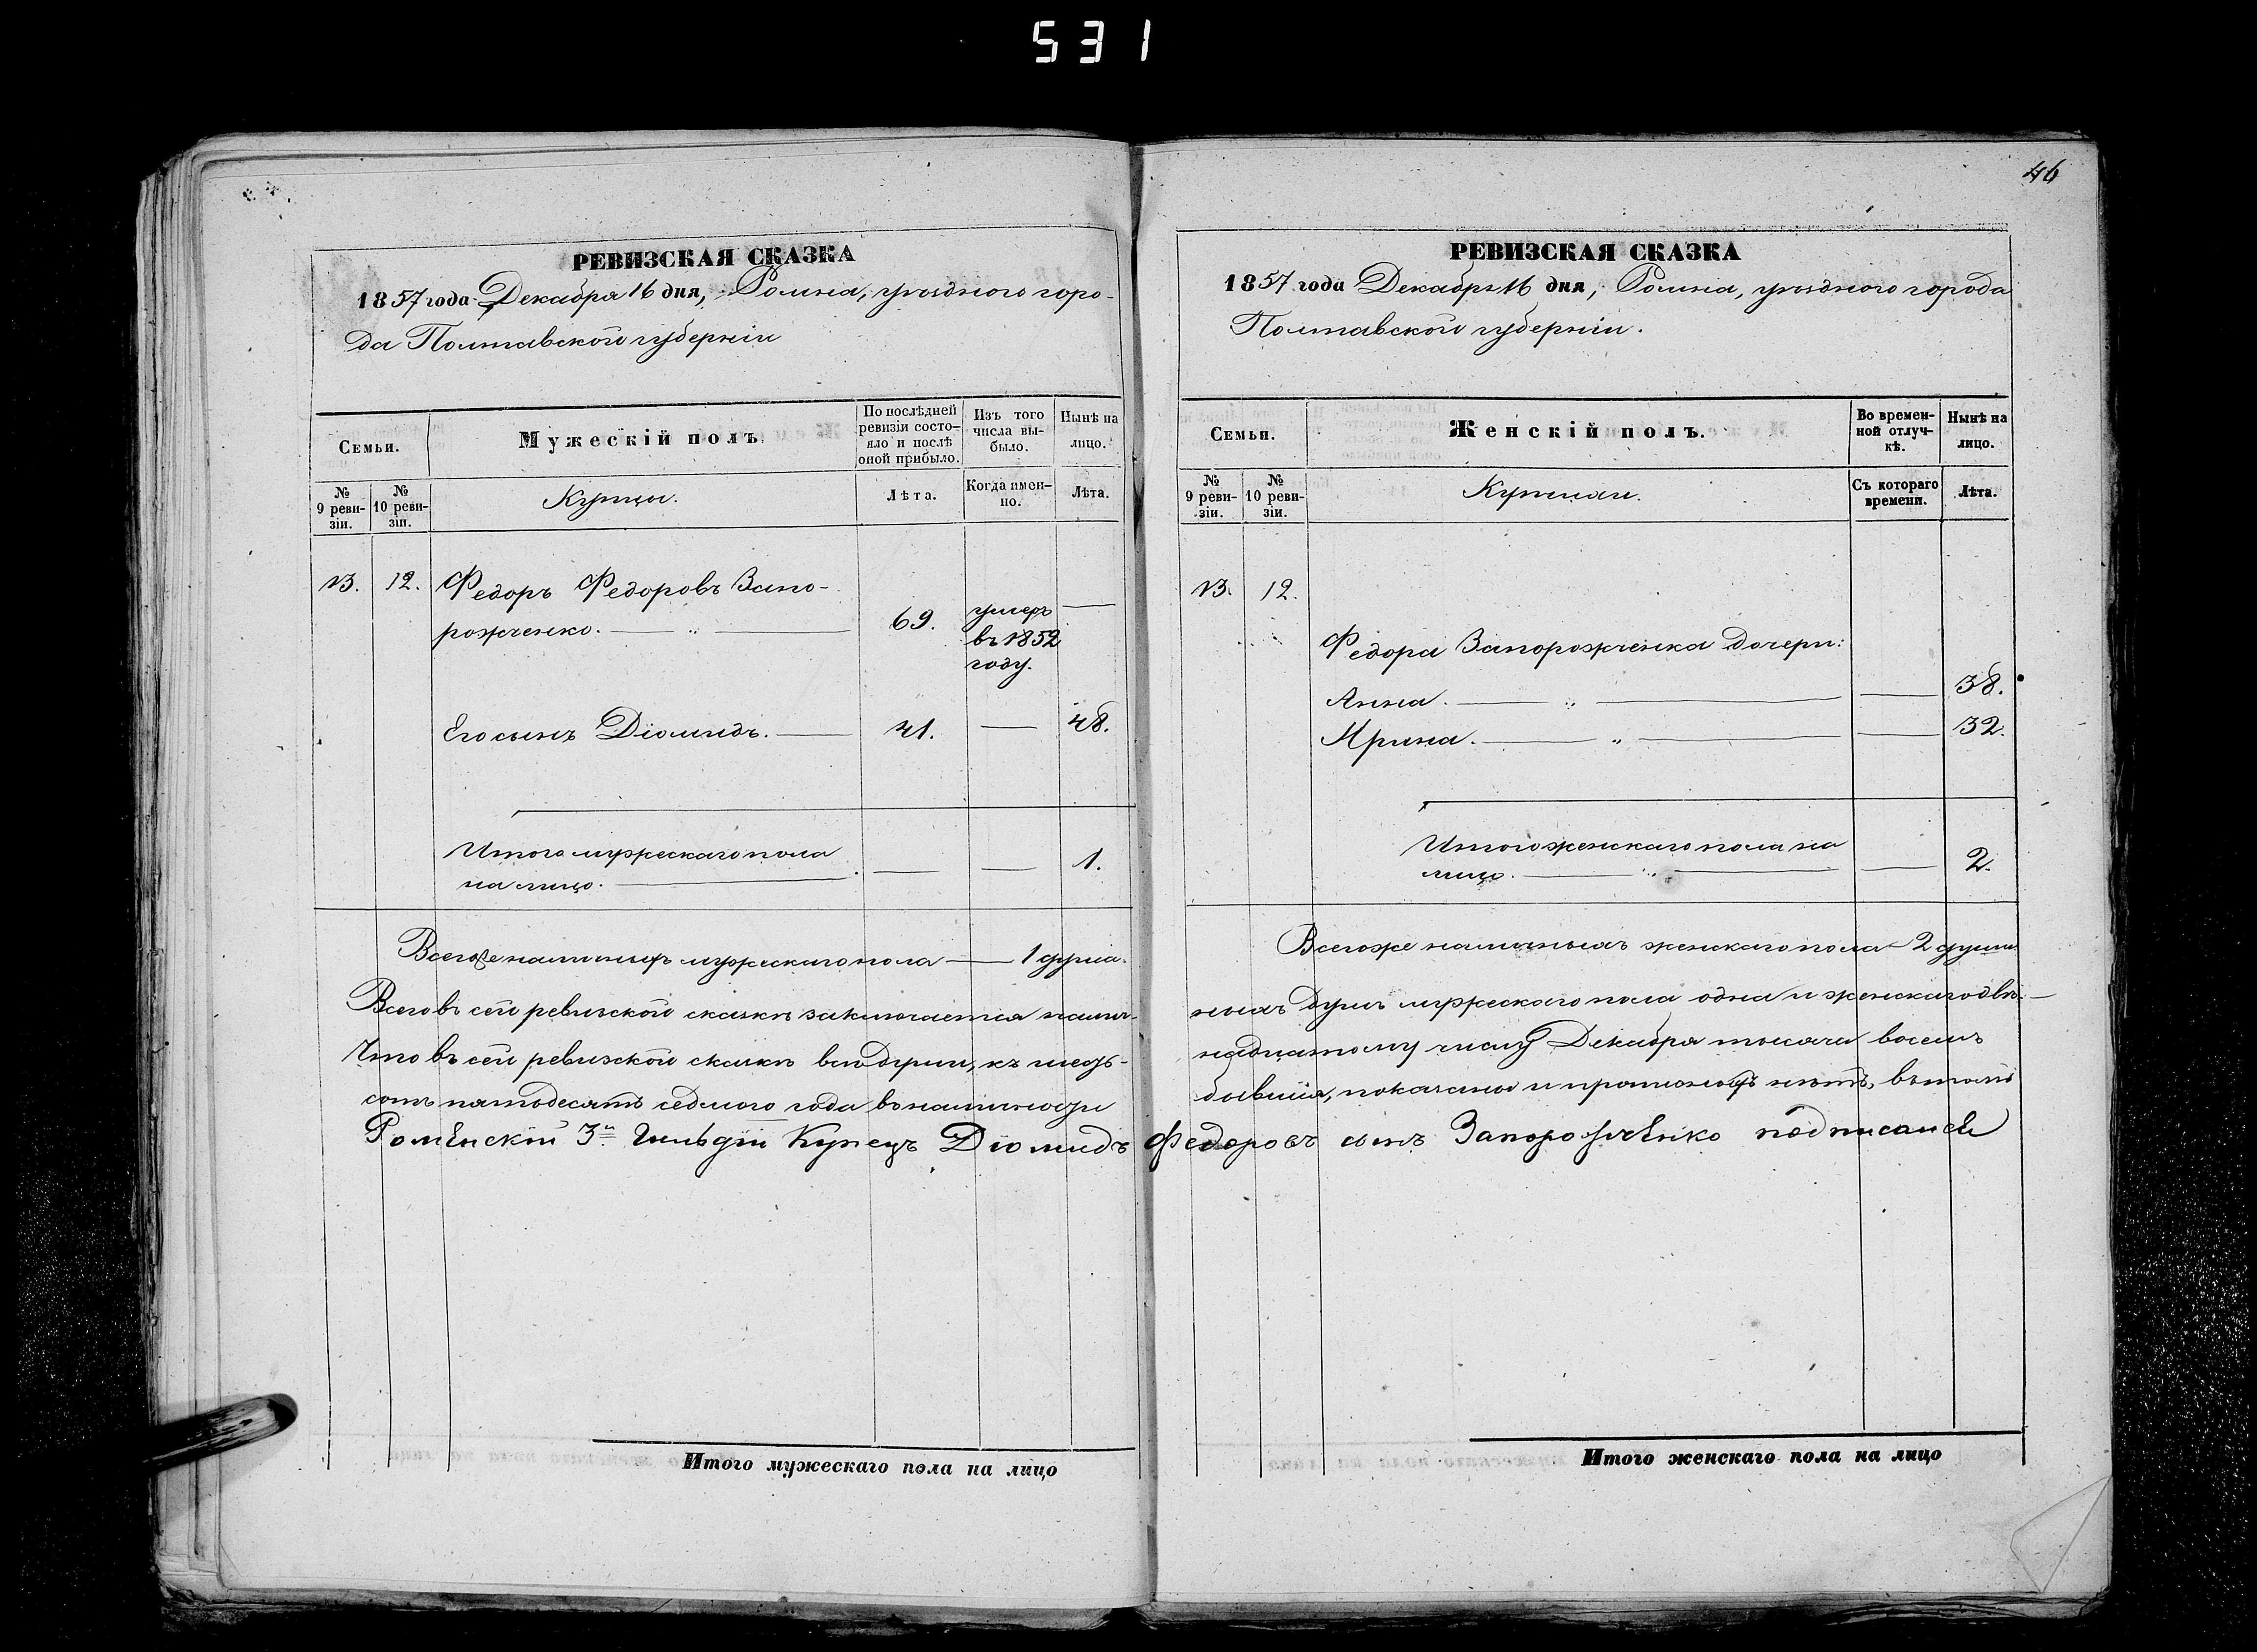 531
46
РЕВИЗСКАЯ СКАЗКА
1857 года Декабря 16 дня, Ромна, уѣзднаго горо-
да Полтавской губерніи
Семьи.
Мужескій полъ.
По послѣдней
ревизіи состо-
яло и послѣ
оной прибыло.
Изъ того
числа вы-
было.
Нынѣ на
лицо.
№
9 реви-
зіи.
№
10 реви-
зіи.
Купцы.
Лѣта.
Когда имен-
но.
Лѣта.
13. 12. Федоръ Федоровъ Запо-
рожченко. 69. умеръ
въ 1852
году.
Его сынъ Діомидъ. 41. 48.
Итого мужескаго пола
на лицо. 1.
Всего же наличныхъ мужескаго пола 1 душа.
Всего въ сей ревизской сказкѣ заключается налич-
Что въ сей ревизской сказкѣ всѣ души, къ шест-
сотъ пятьдесятъ седмого года въ наличности
Роменскій 3й Гильдіи Купецъ Діомидъ
Итого мужескаго пола на лицо
РЕВИЗСКАЯ СКАЗКА
1857 года Декабря 16 дня, Ромна, уѣзднаго города
Полтавской губерніи.
Семьи.
Женскій полъ.
Во времен-
ной отлуч-
кѣ.
Нынѣ на
лицо.
№
9 реви-
зіи.
№
10 реви-
зіи.
Съ котораго
времени.
Лѣта.
13. 12.
Федора Запорожченка дочери:
Анна. 38.
Ирина. 32.
Итого женскаго пола на
лицо. 2.
Всего же наличныхъ женскаго пола 2 души
ныхъ душъ мужескаго пола одна и женскаго двѣ.
надцатому числу Декабря тысяча восемь
бывшія, показаны и прописныхъ нѣтъ, въ томъ
Федоровъ сынъ Запорожченко подписался
Итого женскаго пола на лицо